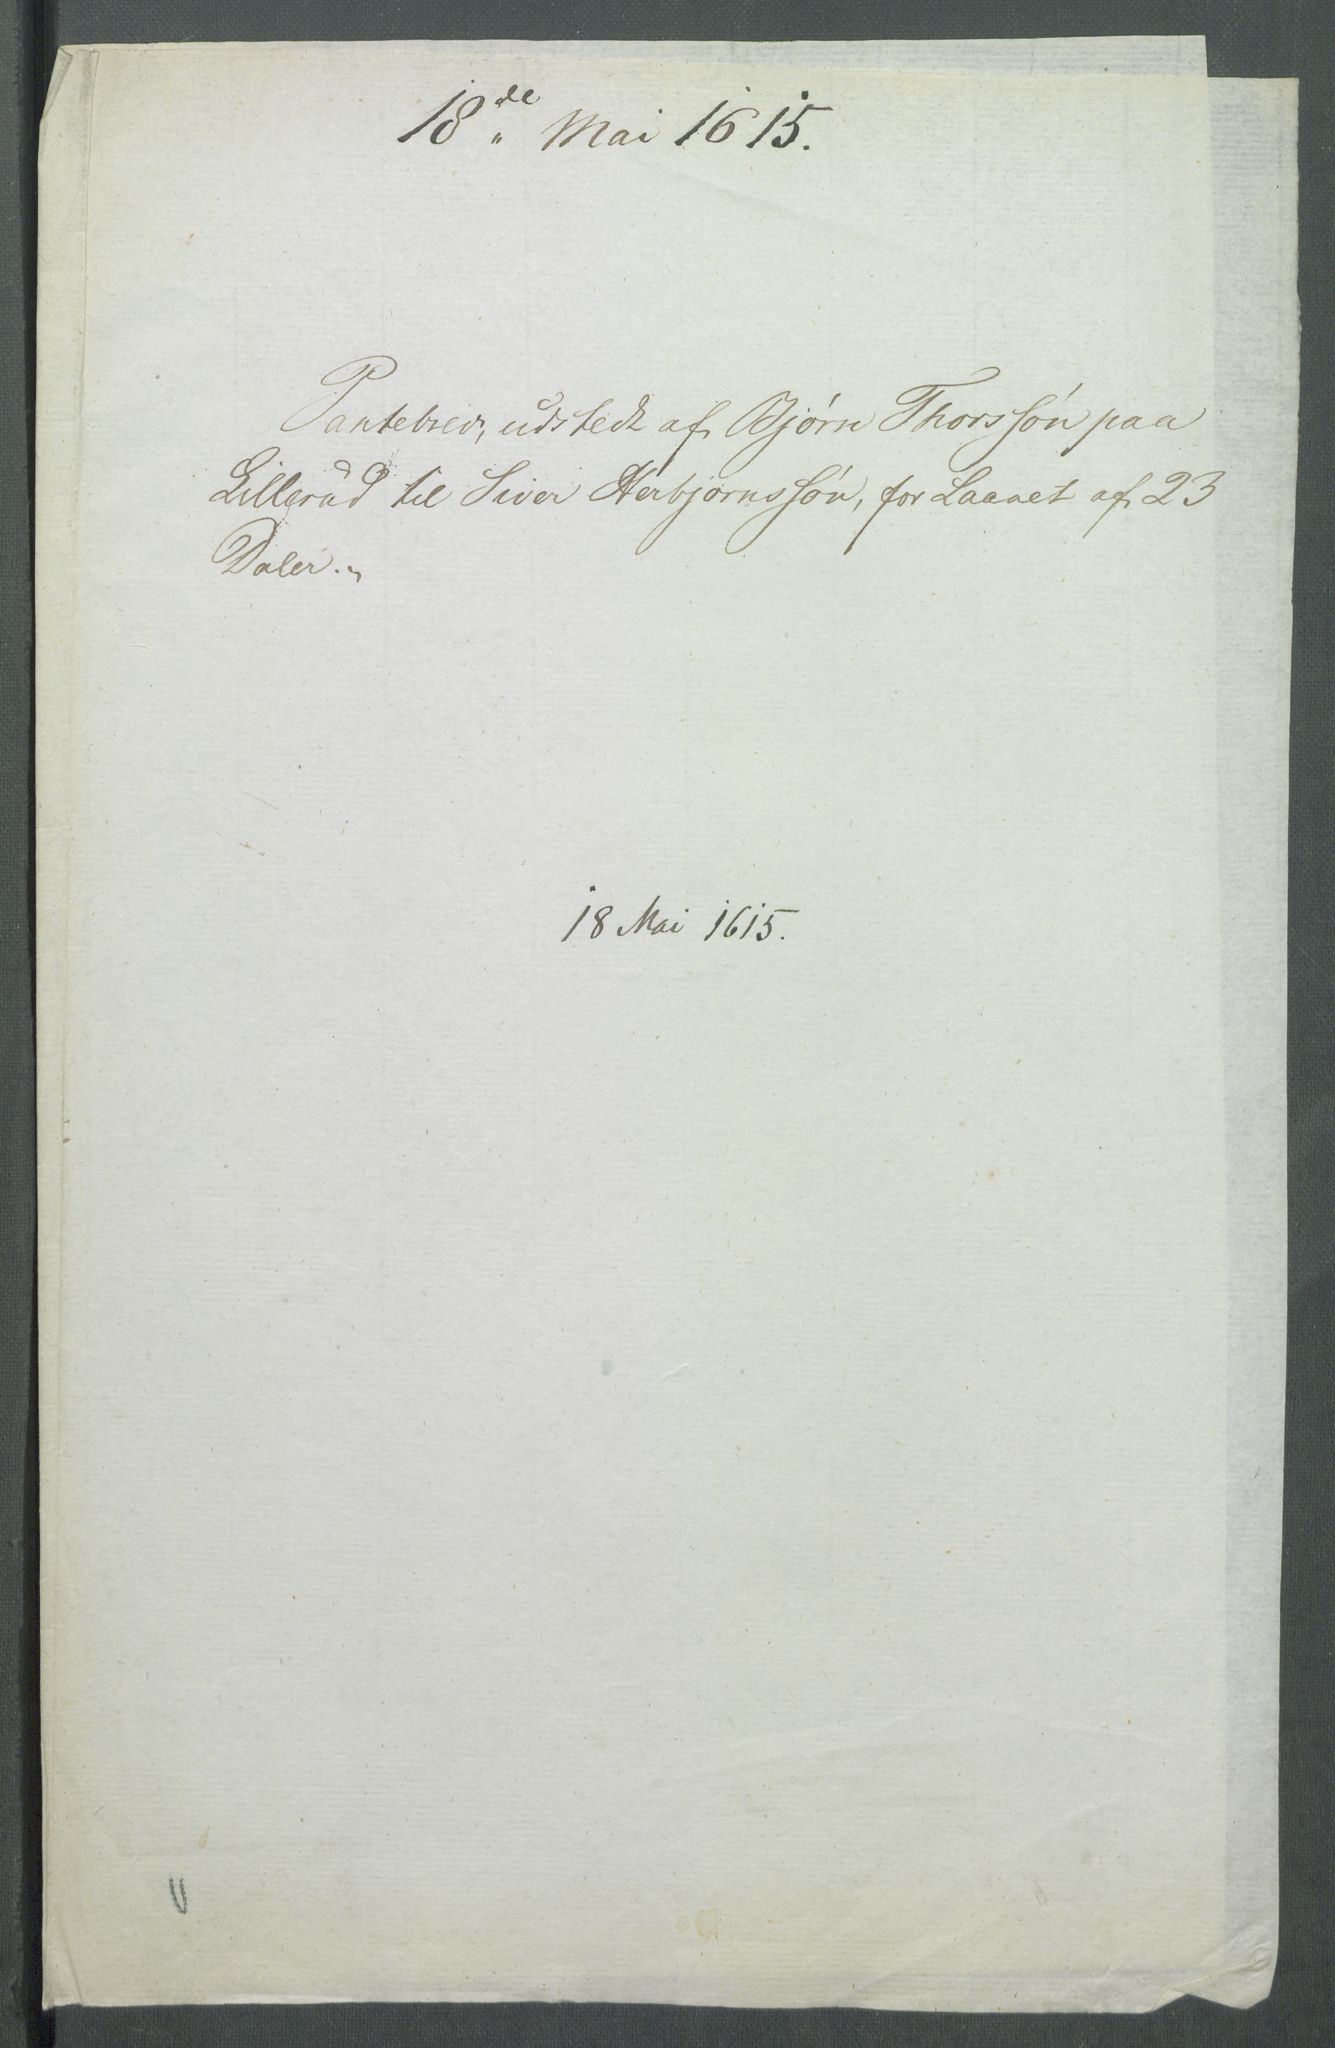 18de Mai 1615.
Pantebrev, udstedt af Bjørn Thorssøn paa
Lillerud til Siver Herbjørnssøn, for Laanet af 23
Daler.
18 Mai 1615.